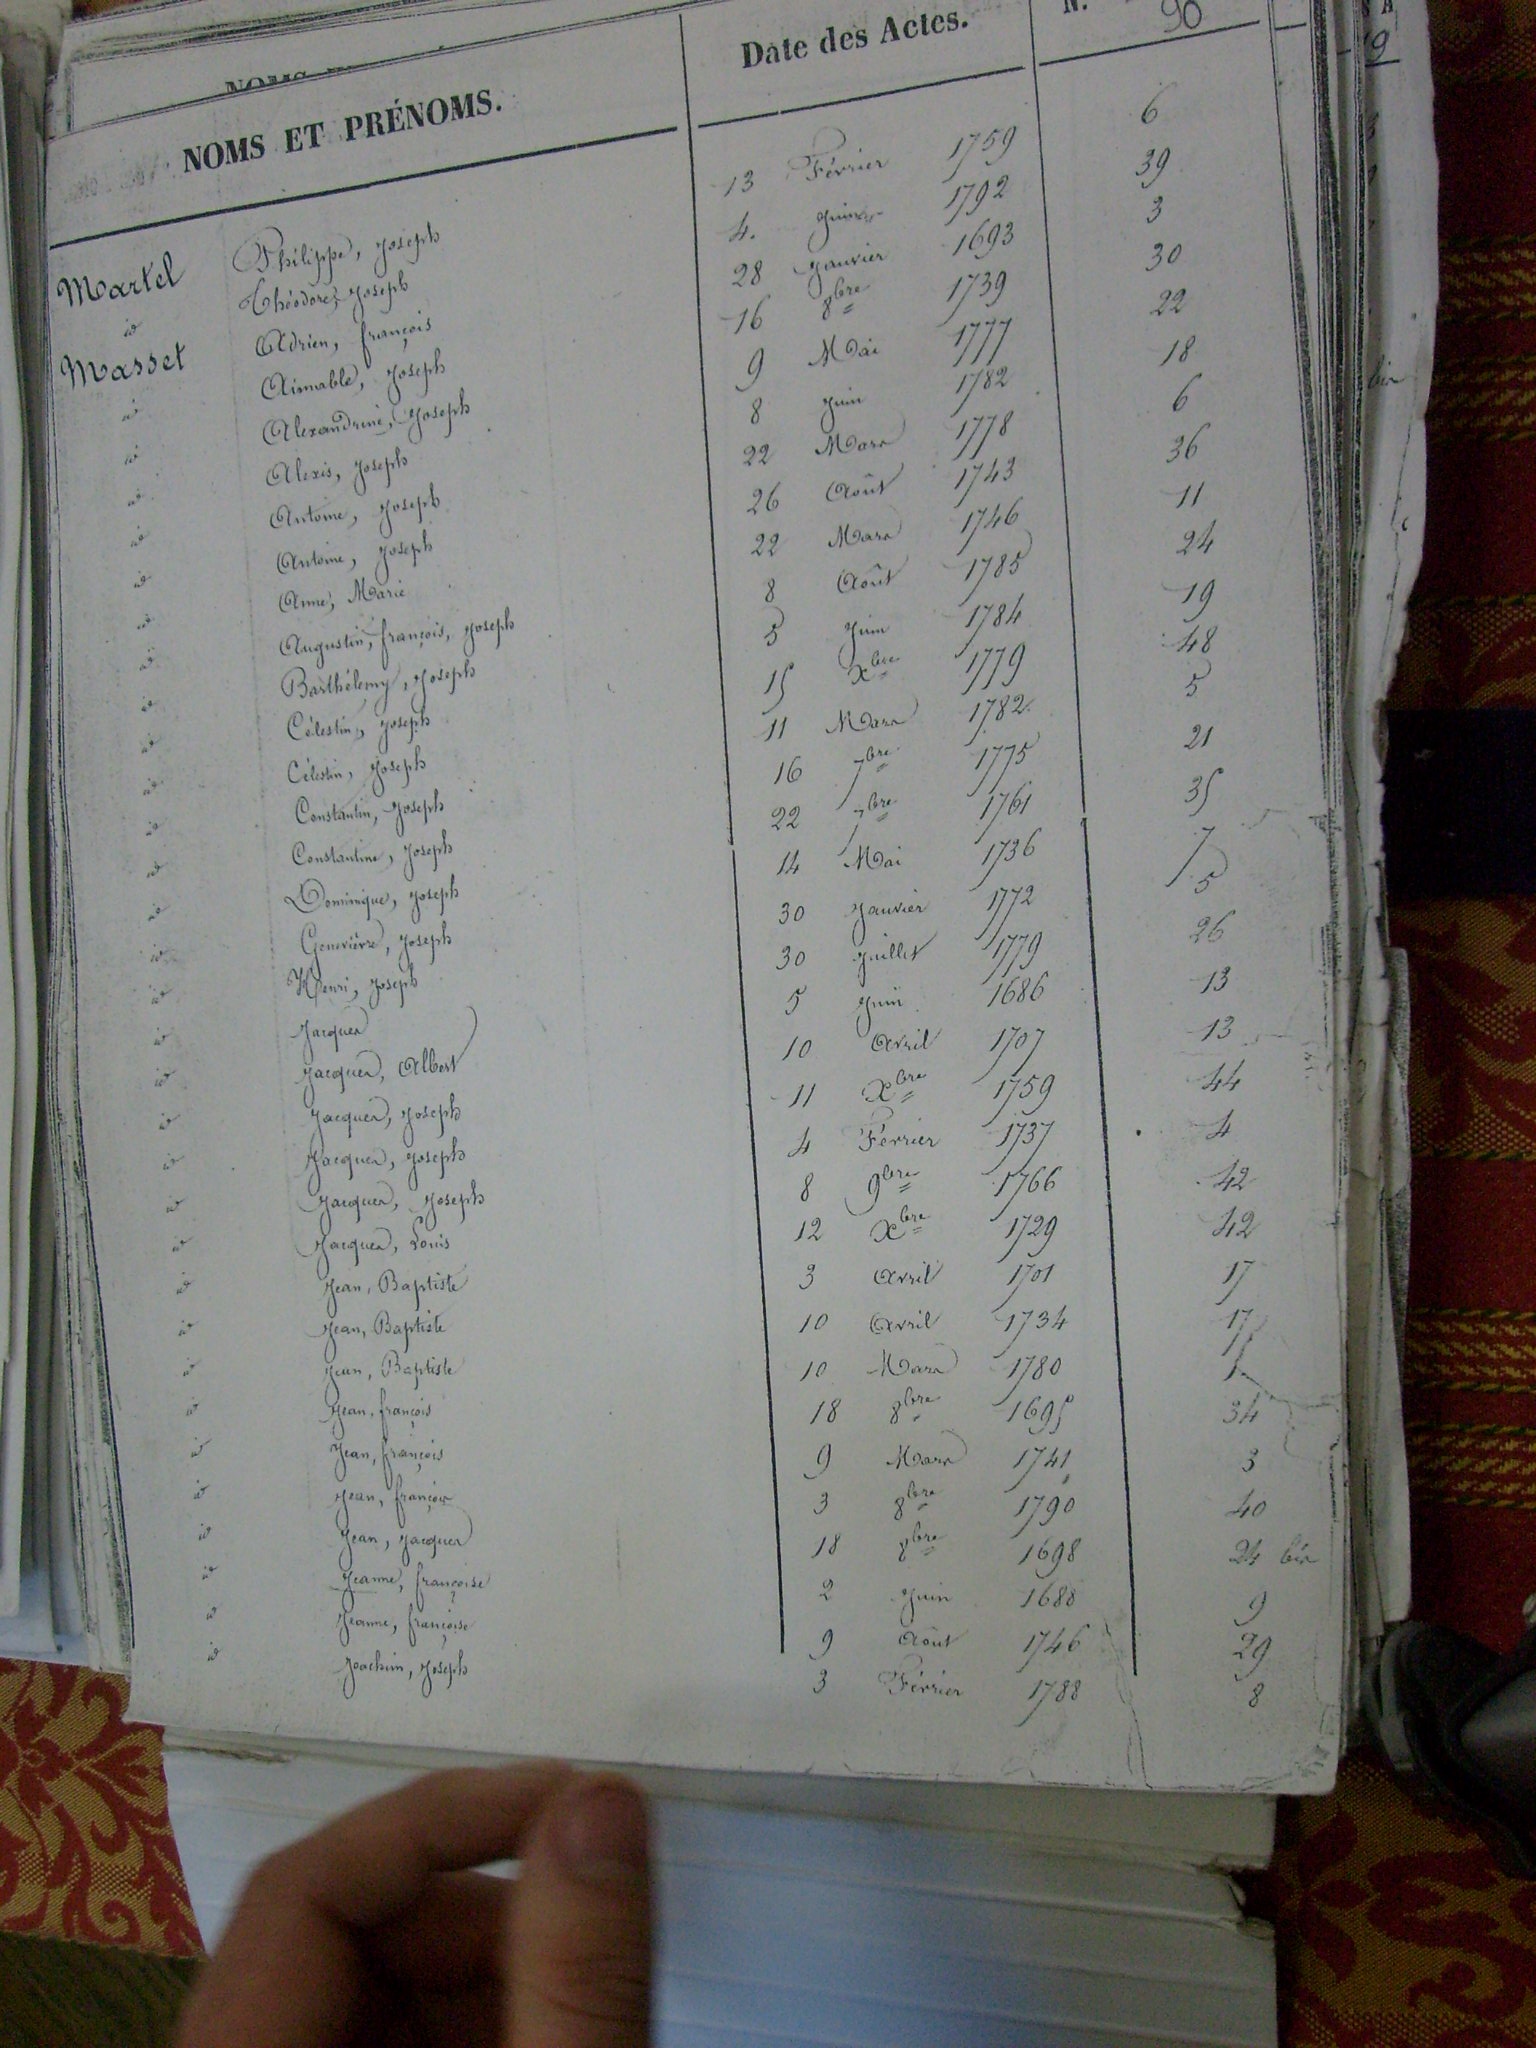 NOMS ET PRÉNOMS. Date des Actes. N. 90
Martel Philippe, Joseph 13 Février 1759 6
id Théodore, Joseph 4. Juin 1792 39
Masset Adrien, françois 28 Janvier 1693 3
id Aimable, Joseph 16 8bre 1739 30
id Alexandrine, Joseph 9 Mai 1777 22
id Alexis, Joseph 8 Juin 1782 18
id Antoine, Joseph 22 Mars 1778 6
id Antoine, Joseph 26 Août 1743 36
id Anne, Marie 22 Mars 1746 11
id Augustin, françois, Joseph 8 Août 1785 24
id Barthélemy, Joseph 5 Juin 1784 19
id Célestin, Joseph 15 Xbre 1779 48
id Célestin, Joseph 11 Mars 1782 5
id Constantin, Joseph 16 7bre 1775 21
id Constantine, Joseph 22 7bre 1761 35
id Dominique, Joseph 14 Mai 1736 7
id Geneviève, Joseph 30 Janvier 1772 5
id Henri, Joseph 30 Juillet 1779 26
id Jacques 5 Juin 1686 13
id Jacques, Albert 10 Avril 1707 13
id Jacques, Joseph 11 Xbre 1759 44
id Jacques, Joseph 4 Février 1737 4
id Jacques, Joseph 8 9bre 1766 42
id Jacques, Louis 12 Xbre 1729 42
id Jean, Baptiste 3 Avril 1701 17
id Jean, Baptiste 10 Avril 1734 17
id Jean, Baptiste 10 Mars 1780 1
id Jean, françois 18 8bre 1695 34
id Jean, françois 9 Mars 1741 3
id Jean, françois 3 8bre 1790 40
id Jean, Jacques 18 8bre 1698 24 bis
id Jeanne, françoise 2 Juin 1688 9
id Jeanne, françoise 9 Août 1746 29
id Joachim, Joseph 3 Février 1788 8